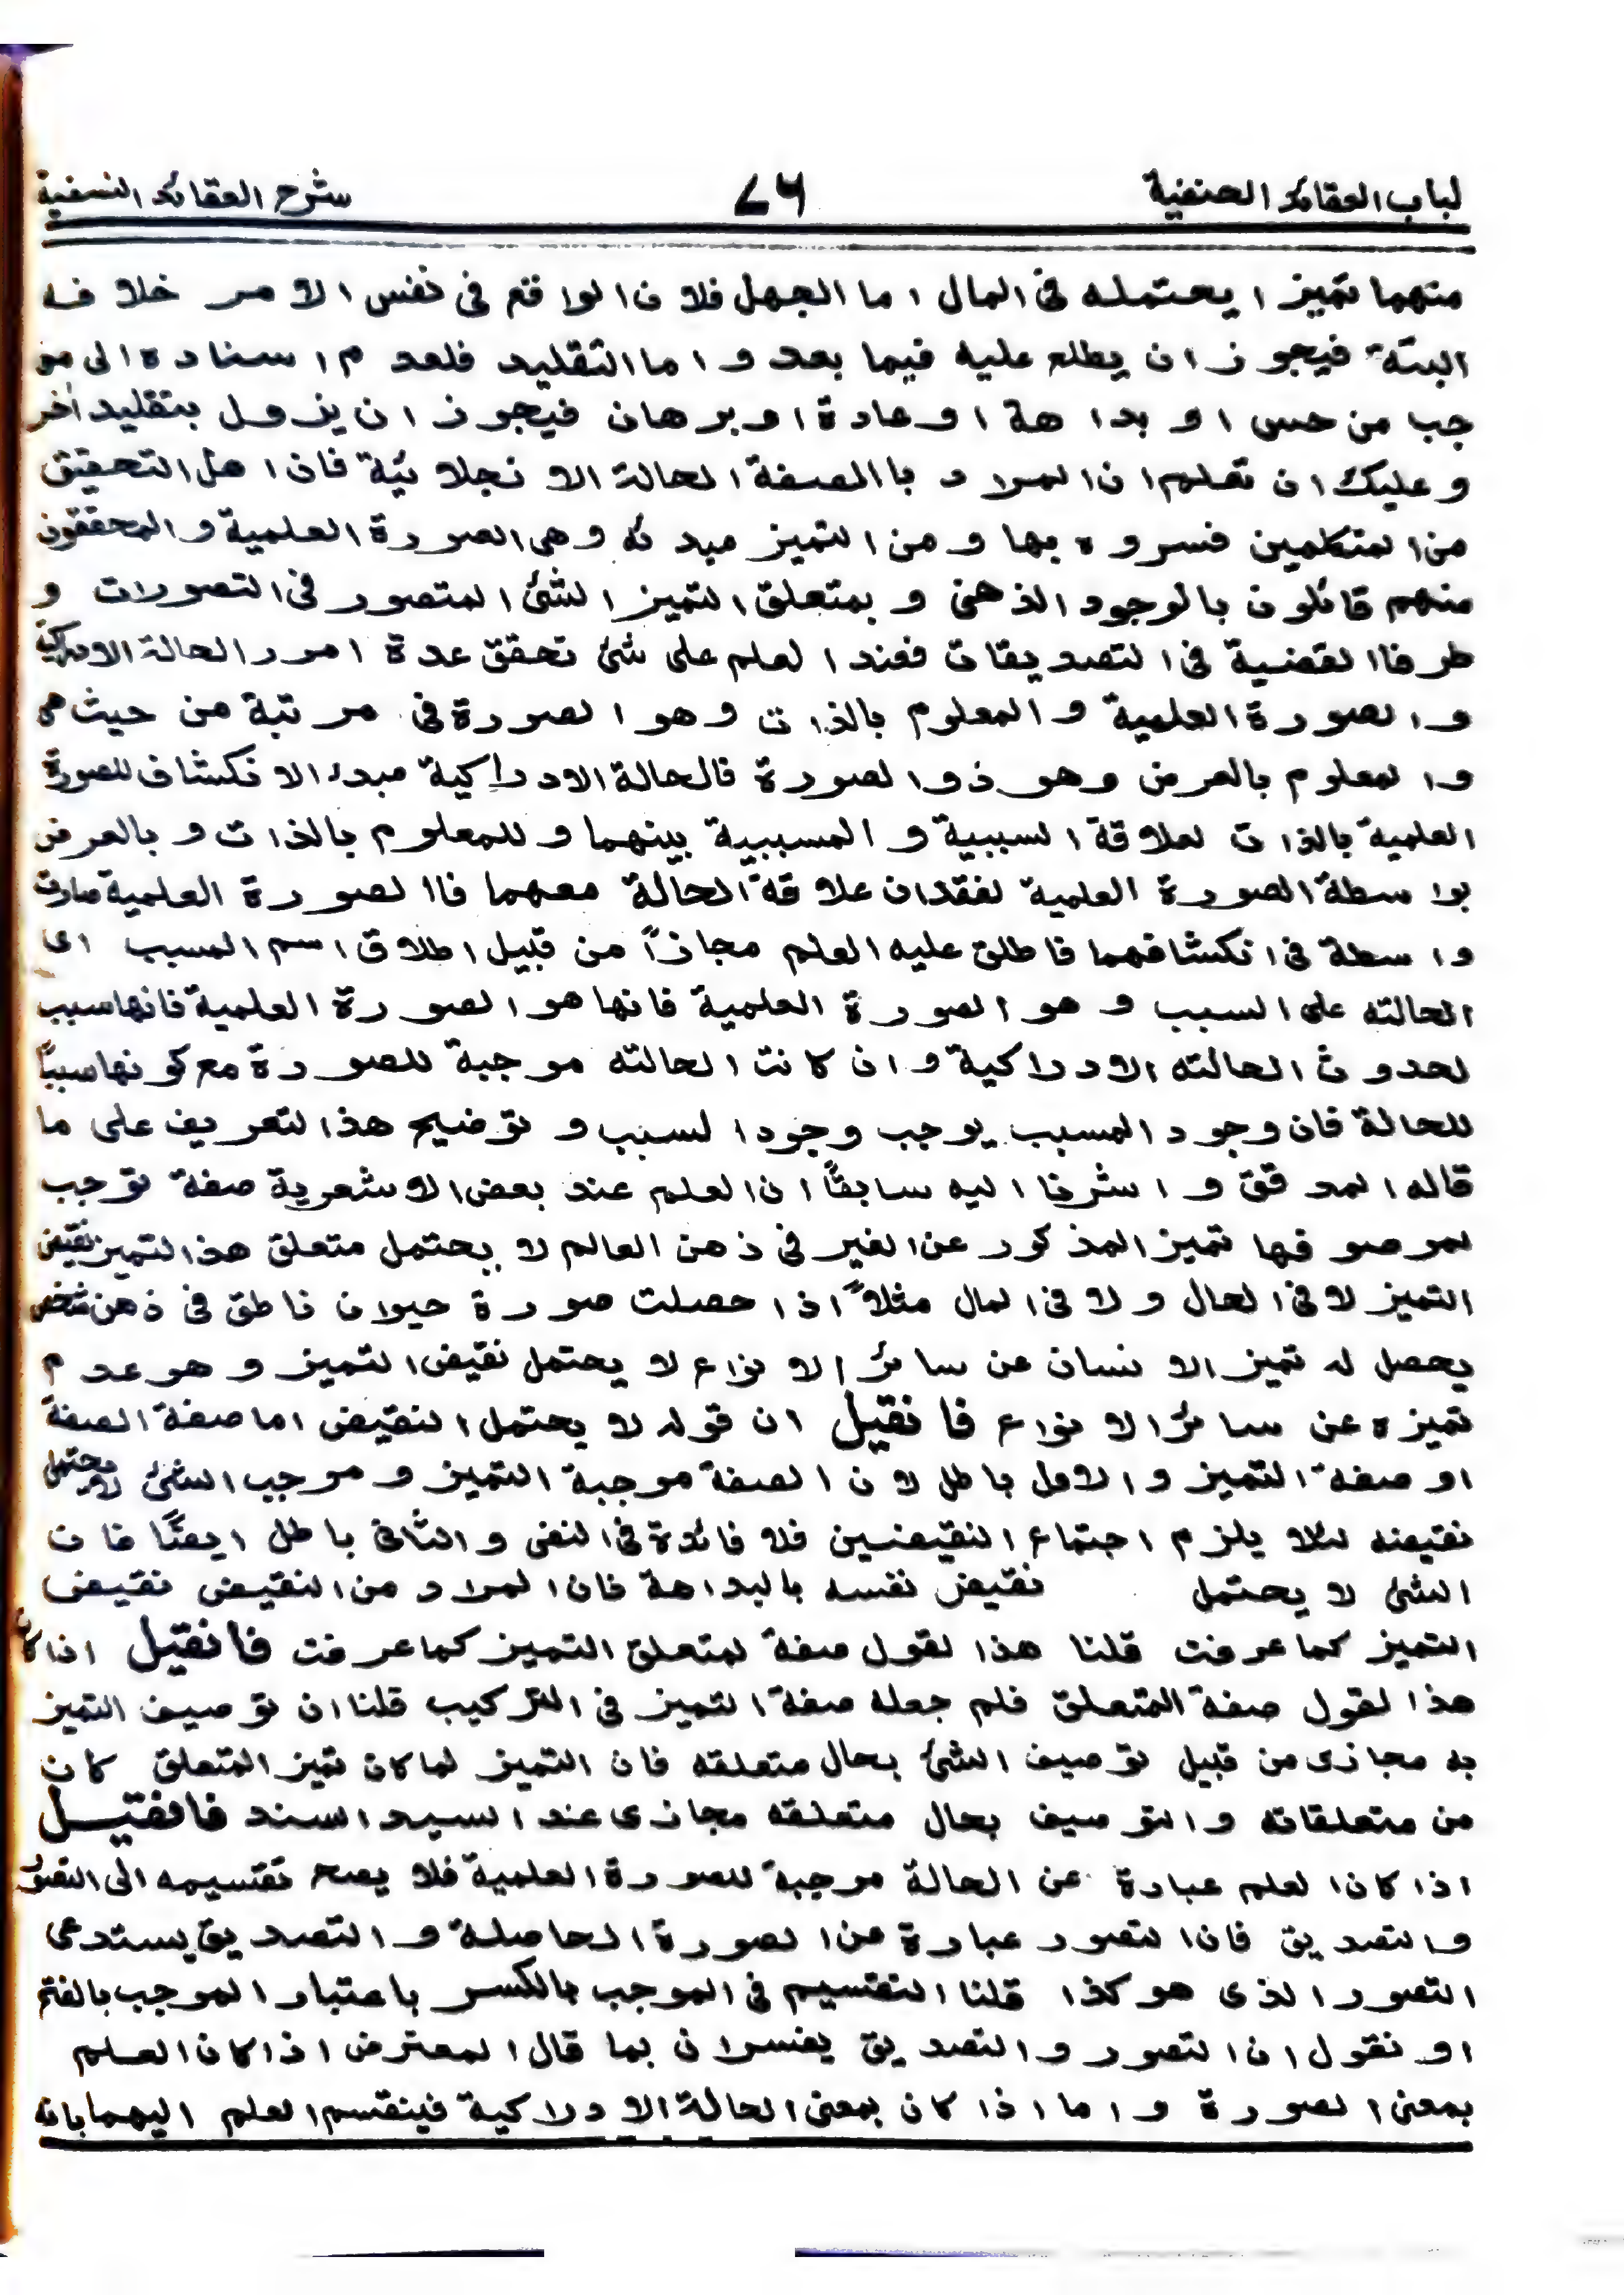 لباب العقائد الحنفية ٧٦ شرح العقائد النسفية
منهما تميز ا يحتمله فى المال اما الجهل فلان الواقع فى نفس الامر خلافه
البتة فيجوز ان يطلع عليه فيما بعد واما التقليد فلعدم اسناده الى مو
جب من حس او بداهة او عادة او برهان فيجوز ان يزول بتقليد اٰخر
وعليك ان تعلم ان المراد با الصفة الحالة الانجلائية فان اهل التحقيق
من المتكلمين فسروه بها ومن التميز مبدئه وهى الصورة العلمية والمحققون
منهم قائلون بالوجود الذهنى وبمتعلق التميز الشئ المتصور فى التصورات و
طرفا القضية فى التصديقات فعند العلم على شئ تحقق عدة امور الحالة الادراكية
والصورة العلمية والمعلوم بالذات وهو الصورة فى مرتبة من حيث هى
والمعلوم بالعرض وهو ذو الصورة فالحالة الادراكية مبدء الانكشاف للصورة
العلمية بالذات لعلاقة السببية والمسببية بينهما وللمعلوم بالذات وبالعرض
بواسطة الصورة العلمية لفقدان علاقة الحالة معهما فاالصورة العلمية صارت
واسطة فى انكشافهما فاطلق عليه العلم مجازاً من قبيل اطلاق اسم المسبب اى
الحالته على السبب وهو الصورة العلمية فانها هو الصورة العلمية فانها سبب
لحدوث الحالته الادراكية وان كانت الحالته موجبة للصورة مع كونها سببًا
للحالة فان وجود المسبب يوجب وجود السبب وتوضيح هذا لتعريف على ما
قاله المدقق واشرنا اليه سابقًا ان العلم عند بعض الاشعرية صفة توجب
لموصوفها تميز المذكور عن الغير فى ذهن العالم لا يحتمل متعلق هذا التميز نقيض
التميز لا فى الحال ولا فى المال مثلاً اذا حصلت صورة حيوان ناطق فى ذهن شخص
يحصل له تميز الانسان عن سائر الانواع لا يحتمل نقيض التميز وهو عدم
تميزه عن سائر الانواع فانقيل ان قوله لا يحتمل النقيض اما صفة الصفة
او صفة التميز والاول باطل لان الصفة موجبة التميز وموجب الشئ لا يحتمل
نقيضه لئلا يلزم اجتماع النقيضين فلا فائدة فى النفى والثانى باطل ايضًا فان
الشئ لا يحتمل نقيض نفسه بالبداهة فان المراد من النقيض نقيض
التميز كما عرفت قلنا هذا لقول صفة لمتعلق التميز كما عرفت فانقيل اذا كان
هذا لقول صفة المتعلق فلم جعله صفة التميز فى التركيب قلنا ان توصيف التميز
به مجازى من قبيل توصيف الشئ بحال متعلقه فان التميز لما كان تميز المتعلق كان
من متعلقاته والتوصيف بحال متعلقه مجازى عند السيد السند فانقيل
اذا كان العلم عبارة عن الحالة موجبة للصورة العلمية فلا يصح تقسيمه الى التصور
والتصديق فان التصور عبارة عن الصورة الحاصلة والتصديق يستدعى
التصور الذى هو كذا قلنا التقسيم فى الموجب بالكسر باعتبار الموجب بالفتح
او نقول ان التصور والتصديق يفسران بما قال المعترض اذا كان العلم
بمعنى الصورة واما اذا كان بمعنى الحالة الادراكية فينقسم العلم اليهما بانه